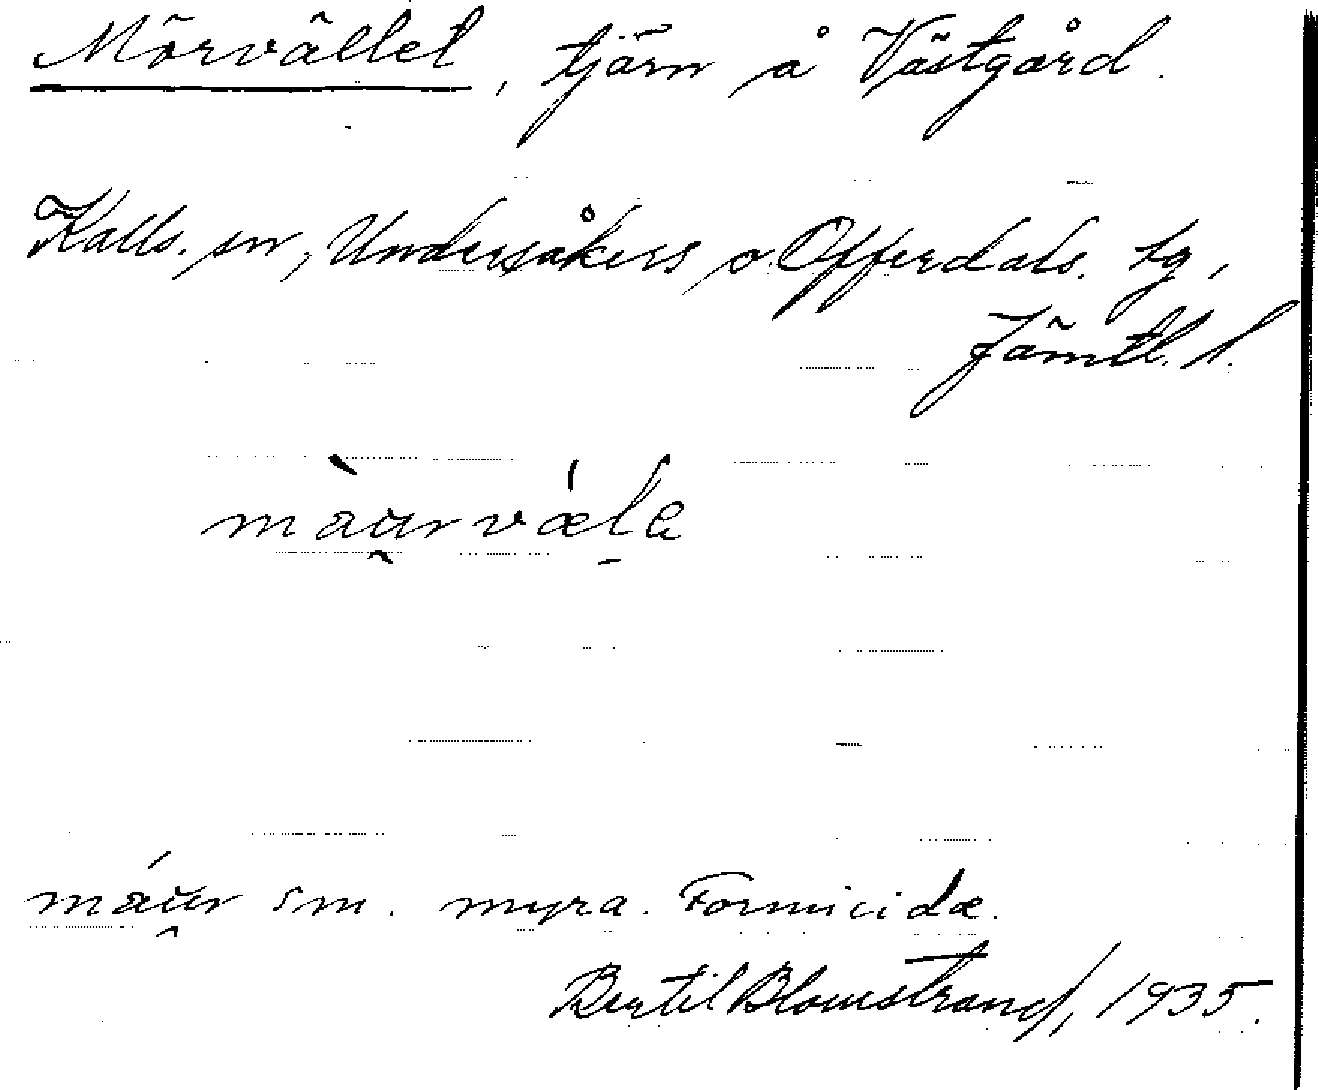 Mörvället, tjärn å Västgård.
Kalls. sn, Undersåkers o. Offerdals. tg,
Jämtl. l.
màu̯rvǽlɐ
máu̯r sm. myra. Formicidæ.
Bertil Blomstrand, 1935.